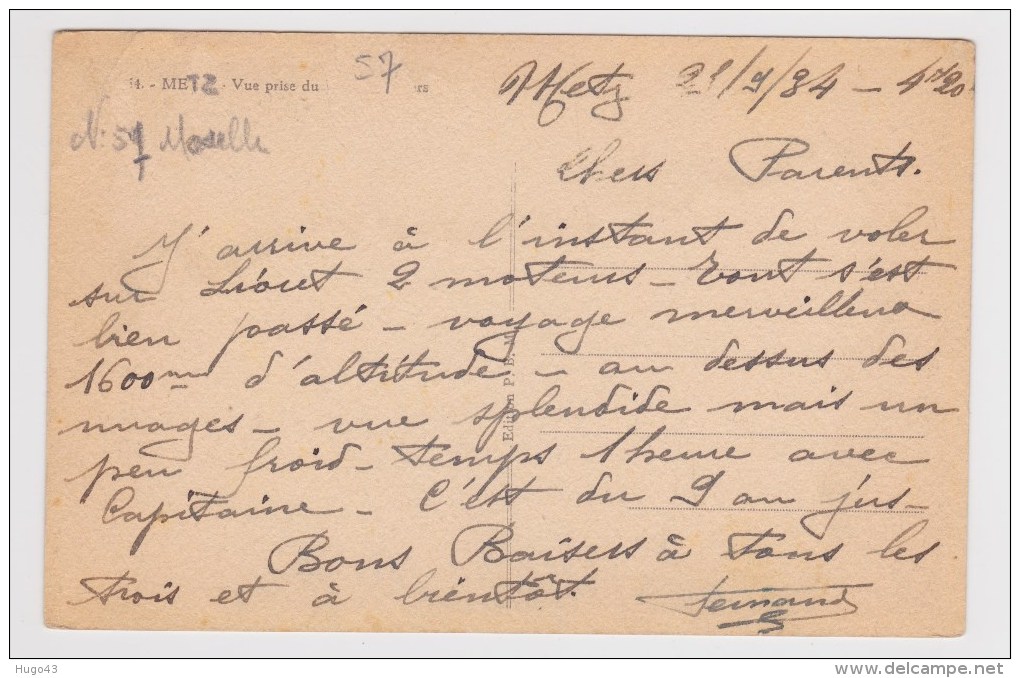 4. - METZ - Vue prise du
57
rs
N: 57 Moselle
Metz 21/9/34 - 4h20
Chers Parents.
J'arrive à l'instant de voler
sur Lioret 2 moteurs - Tout s'est
bien passé - voyage merveilleux
1600m d'altitude - au dessus des
nuages - vue splendide mais un
peu froid - temps 1 heure avec
Capitaine - C'est du 9 au jus -
Bons Baisers à tous les
trois et à bientôt.
Fernand
Edition P. B. M.
Hugo43
www.delcampe.net